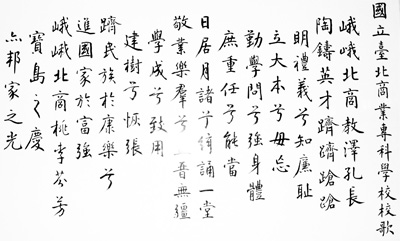 國立臺北商業專科學校校歌
峨峨北商教澤孔長
陶鑄英才躋躋蹌蹌
明禮義兮知廉恥
立大本兮毋忘
勤學問兮強身體
庶重任兮能當
日居月諸兮絃誦一堂
敬業樂羣兮 晉無疆
學成兮致用
建樹兮恢張
躋民族於康樂兮
進國家於富強
峨峨北商桃李芬芳
寶島之慶
亦邦家之光